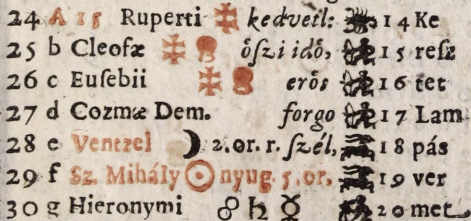 24 A 15 Ruperti kedvetl: 14 Ke
25 b Cleofæ őſzi idő, 15 reſz
26 c Euſebii erős 16 tet
27 d Cozmæ Dem. forgo 17 Lam
28 e Ventzel ☽ 2. or. r. ſzél, 18 pás
29 f Sz. Mihály ☉ nyug. 5. or, 19 ver
30 g Hieronymi ☍ ♄ ☿ 20 met